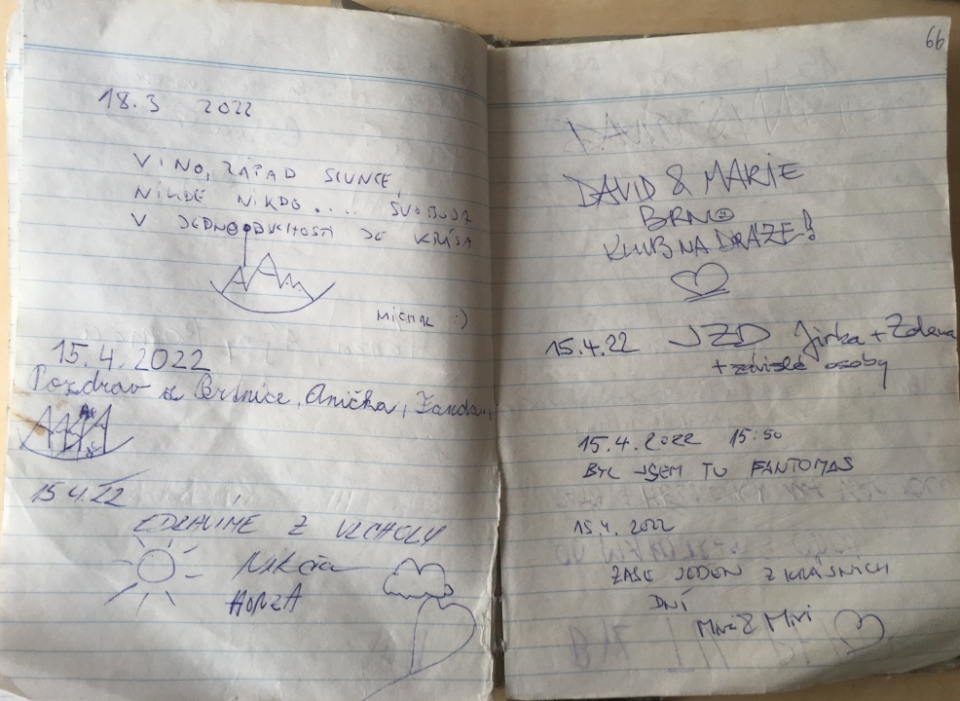 18.3 2022
VÍNO, ZÁPAD SLUNCE,
NIKDE NIKDO.... SVOBODA
V JEDNODUCHOSTI JE KRÁSA
MICHAL :)
15.4.2022
Pozdrav z Brtnice, Anička, Fanda
15.4.22
ZDRAVÍME Z VRCHOLU
HONZA
66
DAVID & MARIE
BRNO
KLUB NA DRÁZE!
15.4.22 JZD Jirka + Zdena
+ závislé osoby
15.4.2022 15:50
BYL JSEM TU FANTOMAS
15.4.2022
ZASE JEDEN Z KRÁSNÝCH
DNÍ